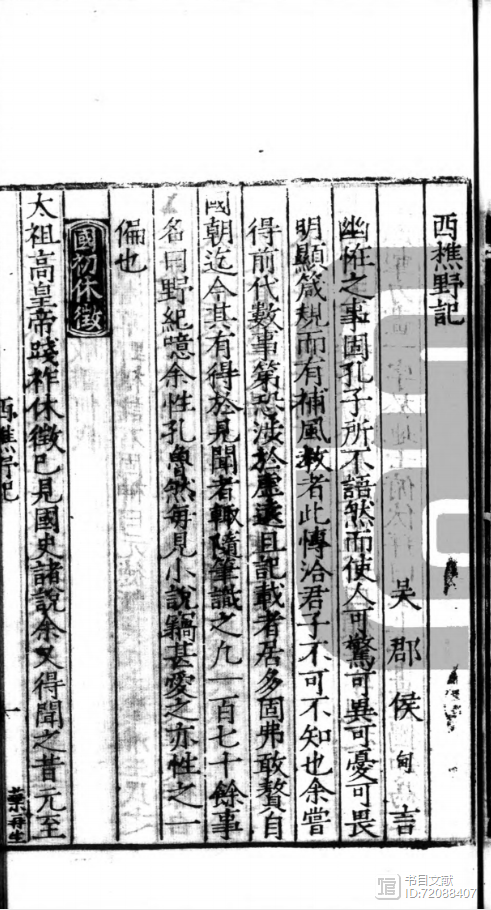 西樵野記
吳郡侯甸言
幽怪之事固孔子所不語然而使人可驚可異可憂可畏
明顯箴規而有補風教者此愽洽君子不可不知也余嘗
得前代數事第恐涉於虛遠且記載者居多固弗敢贅自
國朝迄今其有得於見聞者輙隨筆識之凡一百七十餘事
名曰野紀噫余性孔魯然每見小說竊甚愛之亦性之一
偏也
國初休徵
太祖高皇帝踐祚休徵已見國史諸說余又得聞之昔元至
西樵野記
一
書目文献
ID:72088407